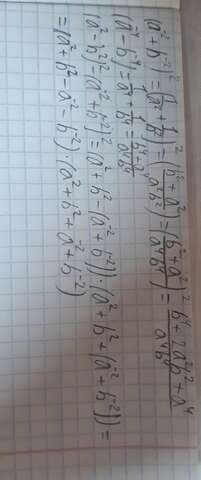 (a⁻²+b⁻²)² = (1/a² + 1/b²)² = ((b²+a²)/(a²b²))² = (b²+a²)²/(a⁴b⁴) = (b⁴+2a²b²+a⁴)/(a⁴b⁴)
(a⁻⁴-b⁻⁴) = 1/a⁴ + 1/b⁴ =
(a²-b²)²-(a⁻²+b⁻²)² = (a²+b²-(a⁻²+b⁻²))·(a²+b²+(a⁻²+b⁻²)) =
= (a²+b²-a⁻²-b⁻²)·(a²+b²+a⁻²+b⁻²)